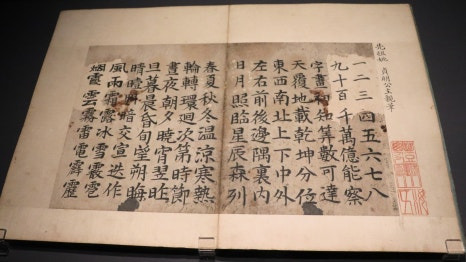 先祖妣 貞明公主親筆
一二三四五六七八
九十百千萬億能察
字畫不知算數可達
天覆地載乾坤分位
東西南北上下中外
左右前後邊隅裏内
日月照臨星辰森列
春夏秋冬溫涼寒熱
輪轉環迴次第時節
晝夜朝夕宵翌昨
旦暮晨昏旬望朔晦
暗交迭作
風雨霜露氷雪雹
烟霞雲霧雷電霹靂